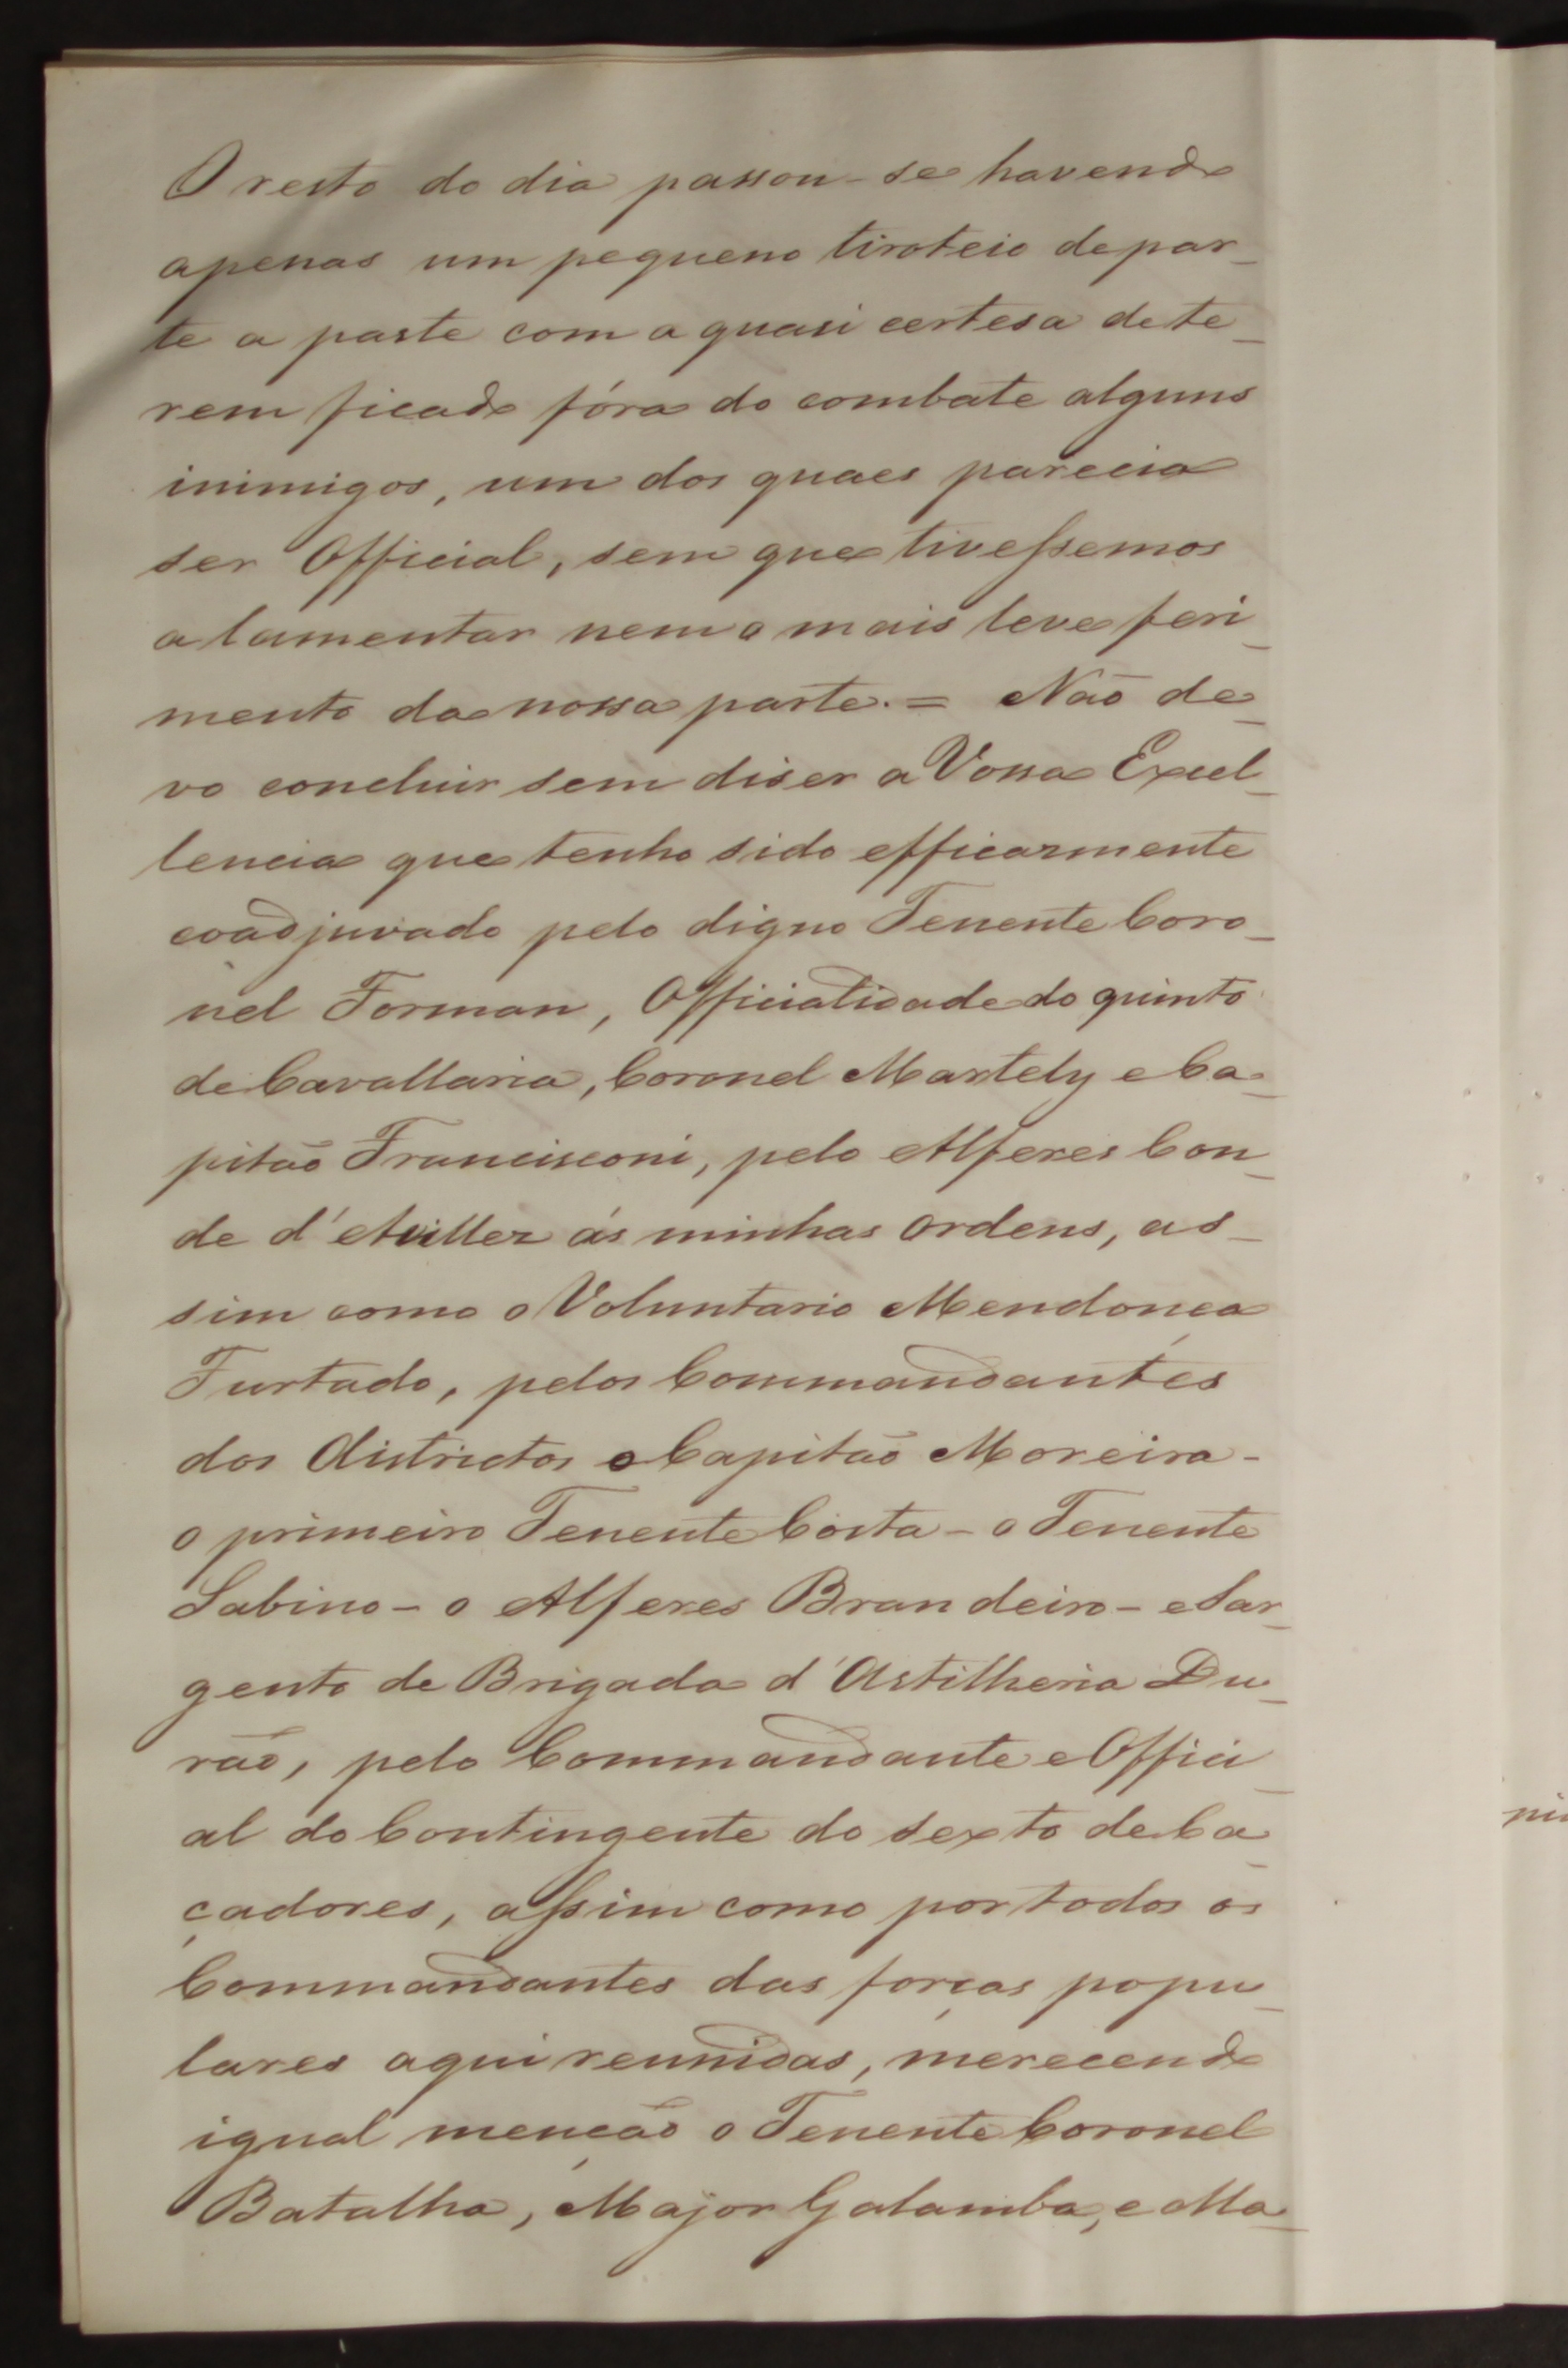 O resto do dia passou-se havendo
apenas um pequeno tiroteio de par_
te a parte com a quasi certesa de te_
rem ficado fóra do combate alguns
inimigos, um dos quaes parecia
ser Official, sem que tivessemos
a lamentar nem o mais leve feri_
mento da nossa parte. = Não de_
vo concluir sem diser a Vossa Excel_
lencia que tenho sido efficazmente
coadjuvado pelo digno Tenente Coro_
nel Forman, Officialidade do quinto
de Cavallaria, Coronel Martely e Ca_
pitão Francisconi, pelo Alferes Con_
de d'Avillez ás minhas ordens, as_
sim como o Voluntario Mendonça
Furtado, pelos Commandantes
dos districtos o Capitão Moreira -
o primeiro Tenente Costa - o Tenente
Sabino - o Alferes Brandeiro - e Sar_
gento de Brigada d'Artilheria Du_
rão, pelo Commandante e Offici_
al do Contingente do sexto de Ca_
çadores, assim como por todos os
Commandantes das forças popu_
lares aqui reunidas, merecendo
igual menção o Tenente Coronel
Batalha, Major Galamba, e Ma_